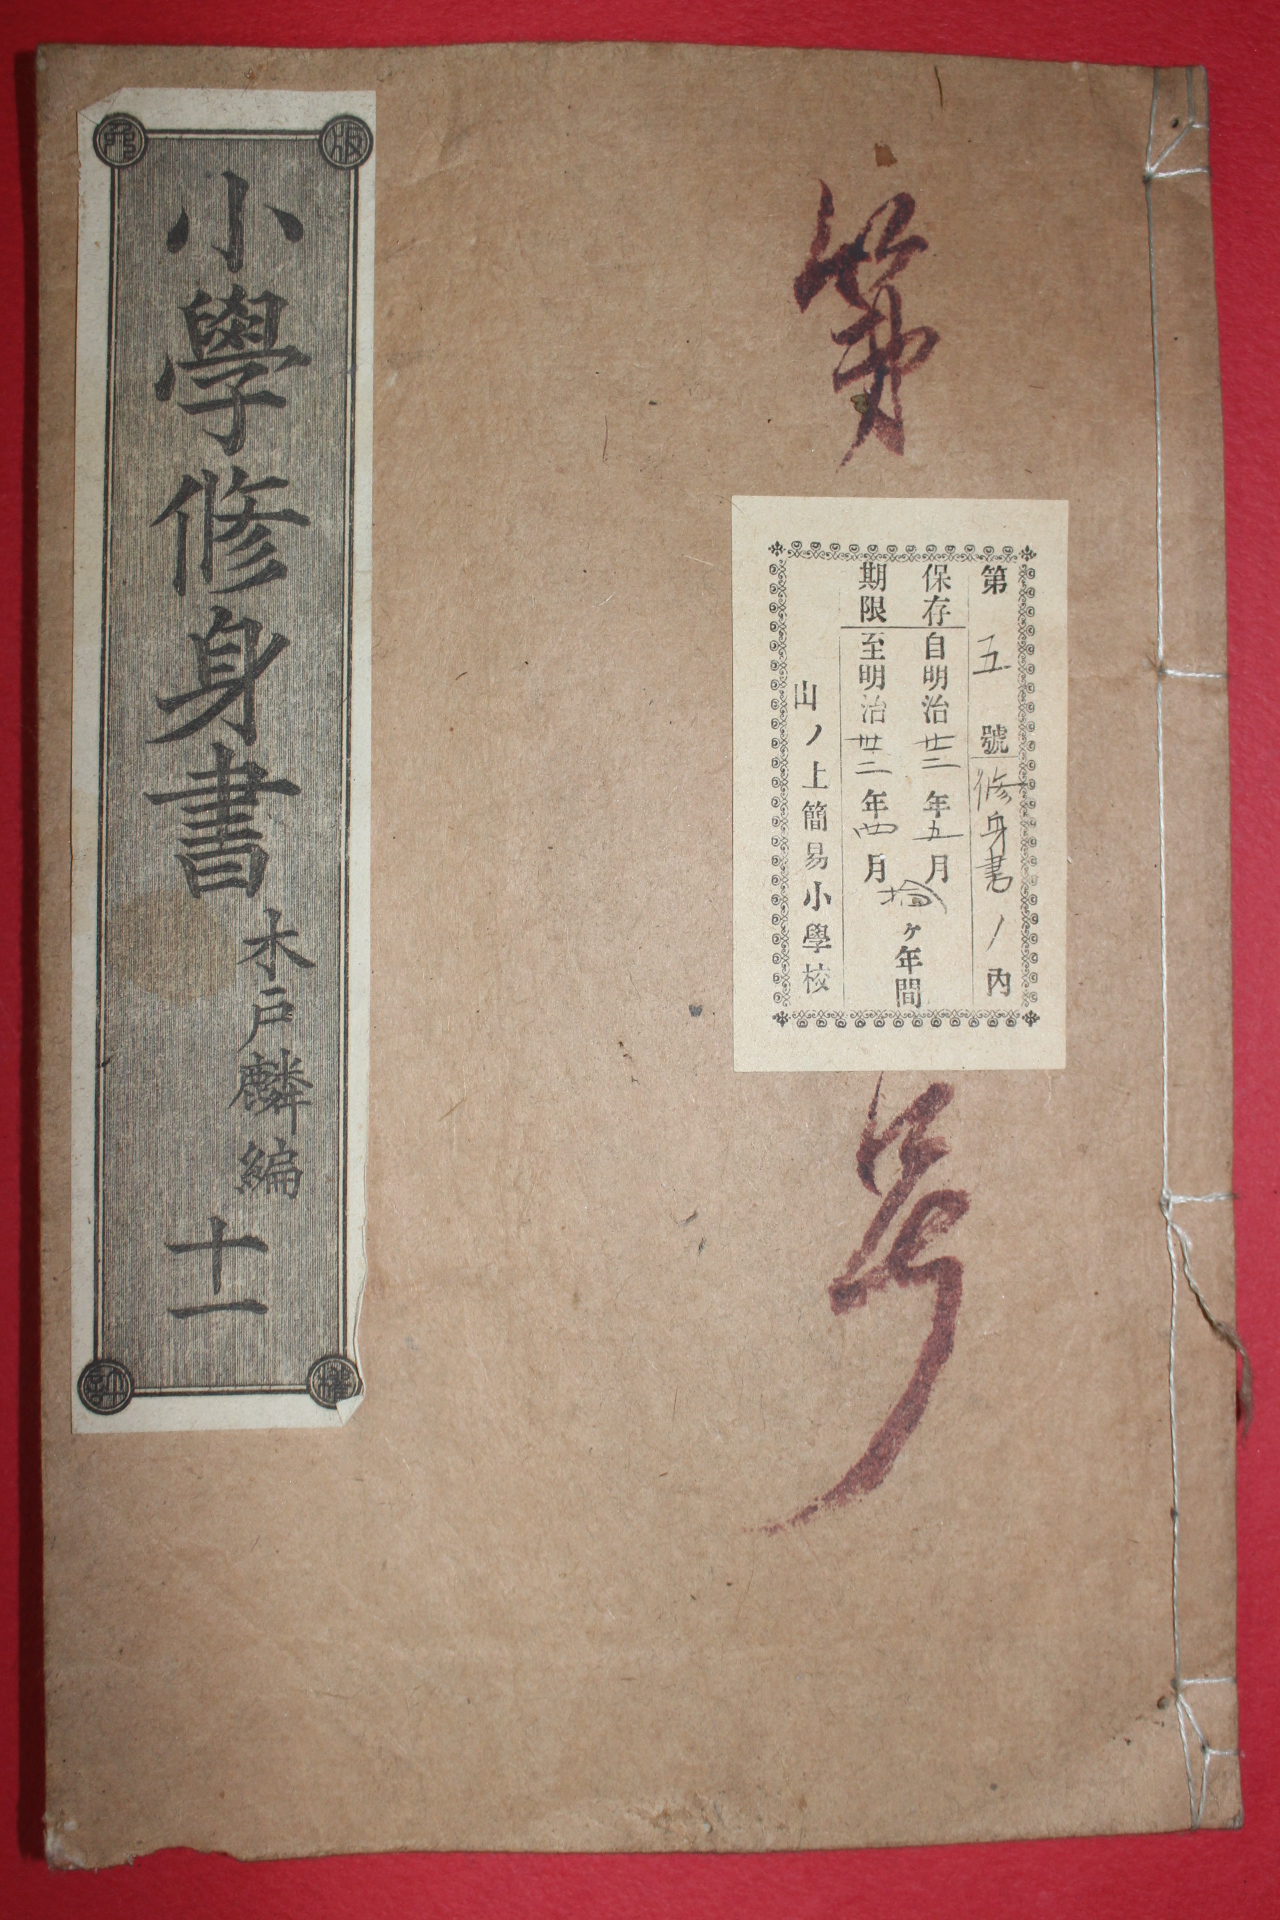 第
号
第五號修身書ノ内
保存期限
自明治廿二年五月
至明治卅二年四月
拾ヶ年間
山ノ上簡易小學校
小學修身書
木戸麟編
十一
版